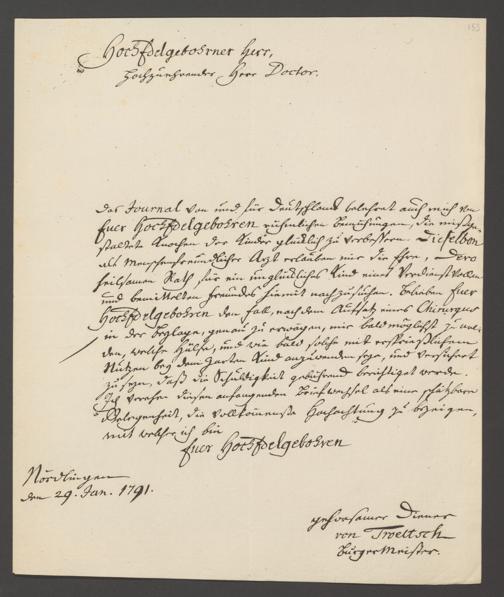 153
HochEdelgebohrner Herr,
Hochzuehrender Herr Doctor.
Das Journal von und für Deutschland belehret auch mich von
Euer HochEdelgebohren rühmlichen Bemühungen, die mißge-
staltete Knochen der Kinder glücklich zu verbessern. Dieselben
als menschenfreundlicher Arzt erlauben mir die Ehre, Dero
heilsamen Rath für ein unglückliches Kind eines Verdienstvollen
und bemittelten Freundes hiemit nachzusuchen. Belieben Euer
HochEdelgebohren den Fall, nach dem Aufsatz eines Chirurgus
in der Beylage, genau zu erwägen, mir bald möglichst zu mel-
den, welche Hülfe, und wie bald solche mit ersprießlichem
Nutzen bey dem zarten Kind anzuwenden seye, und versichert
zu seyn, daß die Schuldigkeit gebührend berichtiget werde.
Ich verehre diesen anfangenden Briefwechsel als eine schätzbare
Gelegenheit, die vollkommenste Hochachtung zu bezeigen,
mit welcher ich bin
Euer HochEdelgebohren
Nördlingen
den 29. Jan. 1791.
gehorsamer Diener
von Troeltsch
Bürgermeister.